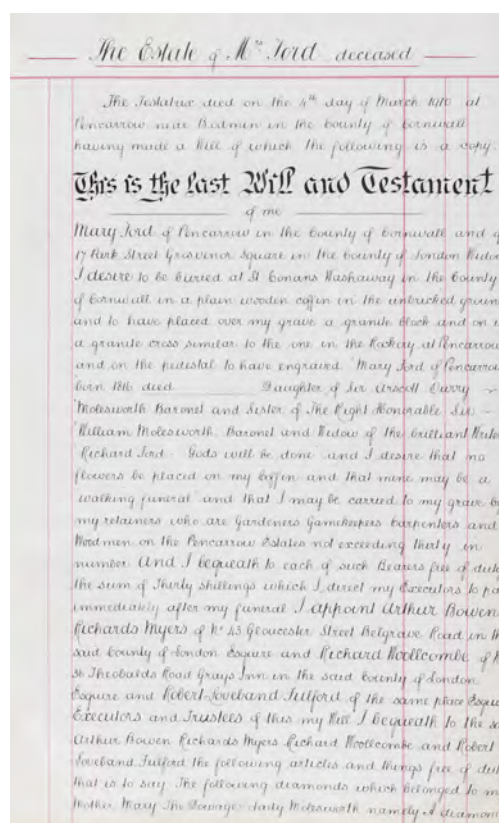 The Estate of Mrs Ford deceased
The Testatrix died on the 4th day of March 1910 at
Pencarrow near Bodmin in the County of Cornwall
having made a Will of which the following is a copy.
This is the last Will and Testament
of me
Mary Ford of Pencarrow in the County of Cornwall and of
17 Park Street Grosvenor Square in the County of London Widow
I desire to be buried at St Conans Washaway in the County
of Cornwall in a plain wooden coffin in the unbricked groun
and to have placed over my grave a granite block and on i
a granite cross similar to the one in the Rockery at Pencarrow
and on the pedestal to have engraved "Mary Ford of Pencarrow
born 1816 died Daughter of Sir Arscott Ourry
Molesworth Baronet and Sister of The Right Honorable Sir
William Molesworth Baronet and Widow of the brilliant Write
Richard Ford Gods will be done" and I desire that no
flowers be placed on my coffin and that mine may be a
"walking funeral" and that I may be carried to my grave by
my retainers who are Gardeners Gamekeepers Carpenters and
Woodmen on the Pencarrow Estates not exceeding thirty in
number And I bequeath to each of such Bearers free of dut
the sum of Thirty shillings which I direct my Executors to pa
immediately after my funeral I appoint Arthur Bowen
Richards Myers of No 43 Gloucester Street Belgrave Road in th
said County of London Esquire and Richard Woollcombe of
Theobalds Road Grays Inn in the said County of London
Esquire and Robert Loveband Fulford of the same place Esqui
Executors and Trustees of this my Will I bequeath to the sa
Arthur Bowen Richards Myers Richard Woollcombe and Robert
Loveband Fulford the following articles and things free of dut
that is to say The following diamonds which belonged to m
Mother Mary The Dowager Lady Molesworth namely A diamon